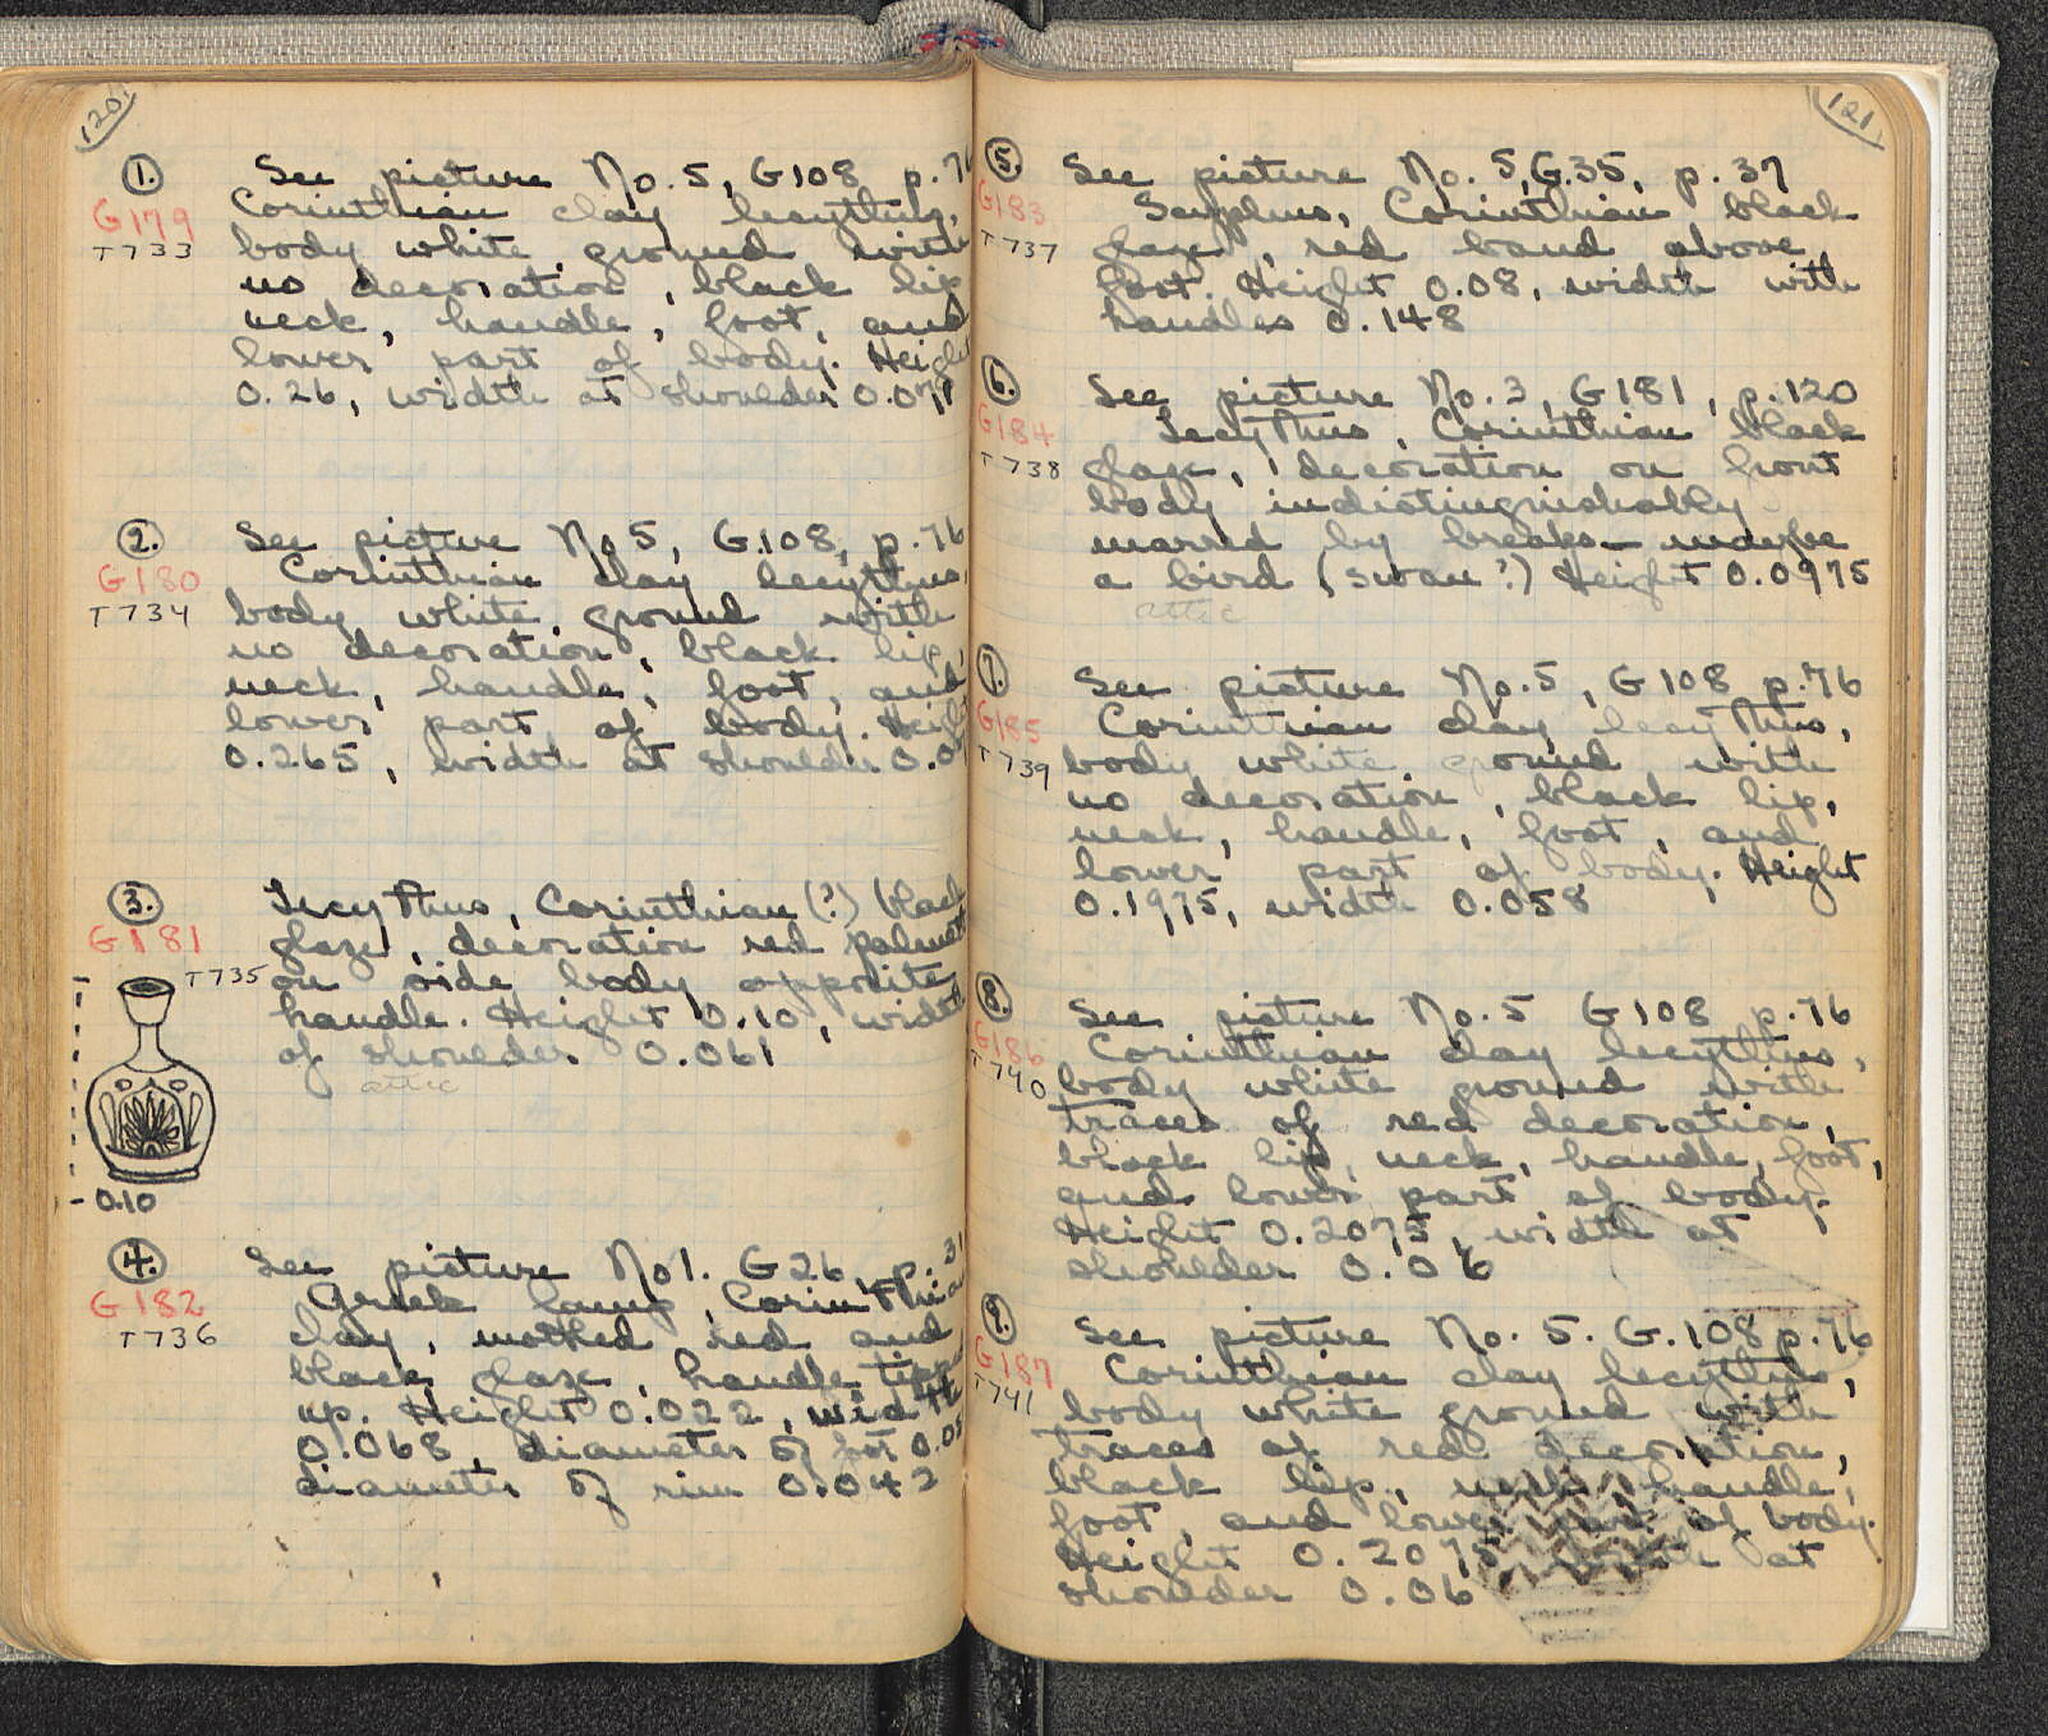 120
1.
See picture No. 5, G108 p. 76
G179
Corinthian clay lecythus,
T733
body white ground with
no decoration, black lip
neck, handle, foot, and
lower part of body. Height
0.26, width at shoulder 0.071
2.
See picture No 5, G.108, p. 76
G180
Corinthian clay lecythus,
T734
body white ground with
no decoration, black lip,
neck, handle, foot, and
lower part of body. Height
0.265, width at shoulder
3.
Lecythus, Corinthian (?) black
G181
glaze, decoration red palmette
T735
on side body opposite
handle. Height 0.10, width
of shoulder 0.061
attic
0.10
4.
See picture No 1. G26, p. 31
G182
Greek lamp, Corinthian
T736
clay, red and
black glaze, handle tipped
up. Height 0.022, width
0.068, diameter of foot
diameter of rim 0.042
121
5.
See picture No. 5, G.35, p. 37
G183
Scyphus, Corinthian black
T737
glaze, red band above
foot. Height 0.08, width with
handles 0.148
6.
See picture No. 3, G181, p. 120
G184
Lecythus, Corinthian black
T738
glaze, decoration on front
body indistinguishably
marred by breaks — maybe
a bird (swan?) Height 0.0975
attic
7.
See picture No. 5, G108 p. 76
G185
Corinthian clay lecythus,
T739
body white ground with
no decoration, black lip,
neck, handle, foot, and
lower part of body. Height
0.1975, width 0.058
8.
See picture No. 5 G108 p. 76
G186
Corinthian clay lecythus,
T740
body white ground with
traces of red decoration,
black lip, neck, handle, foot,
and lower part of body.
Height 0.2075, width at
shoulder 0.06
9.
See picture No. 5. G.108 p. 76
G187
Corinthian clay lecythus,
T741
body white ground with
traces of red decoration,
black lip, neck, handle,
foot, and lower part of body.
Height 0.2075 width at
shoulder 0.06